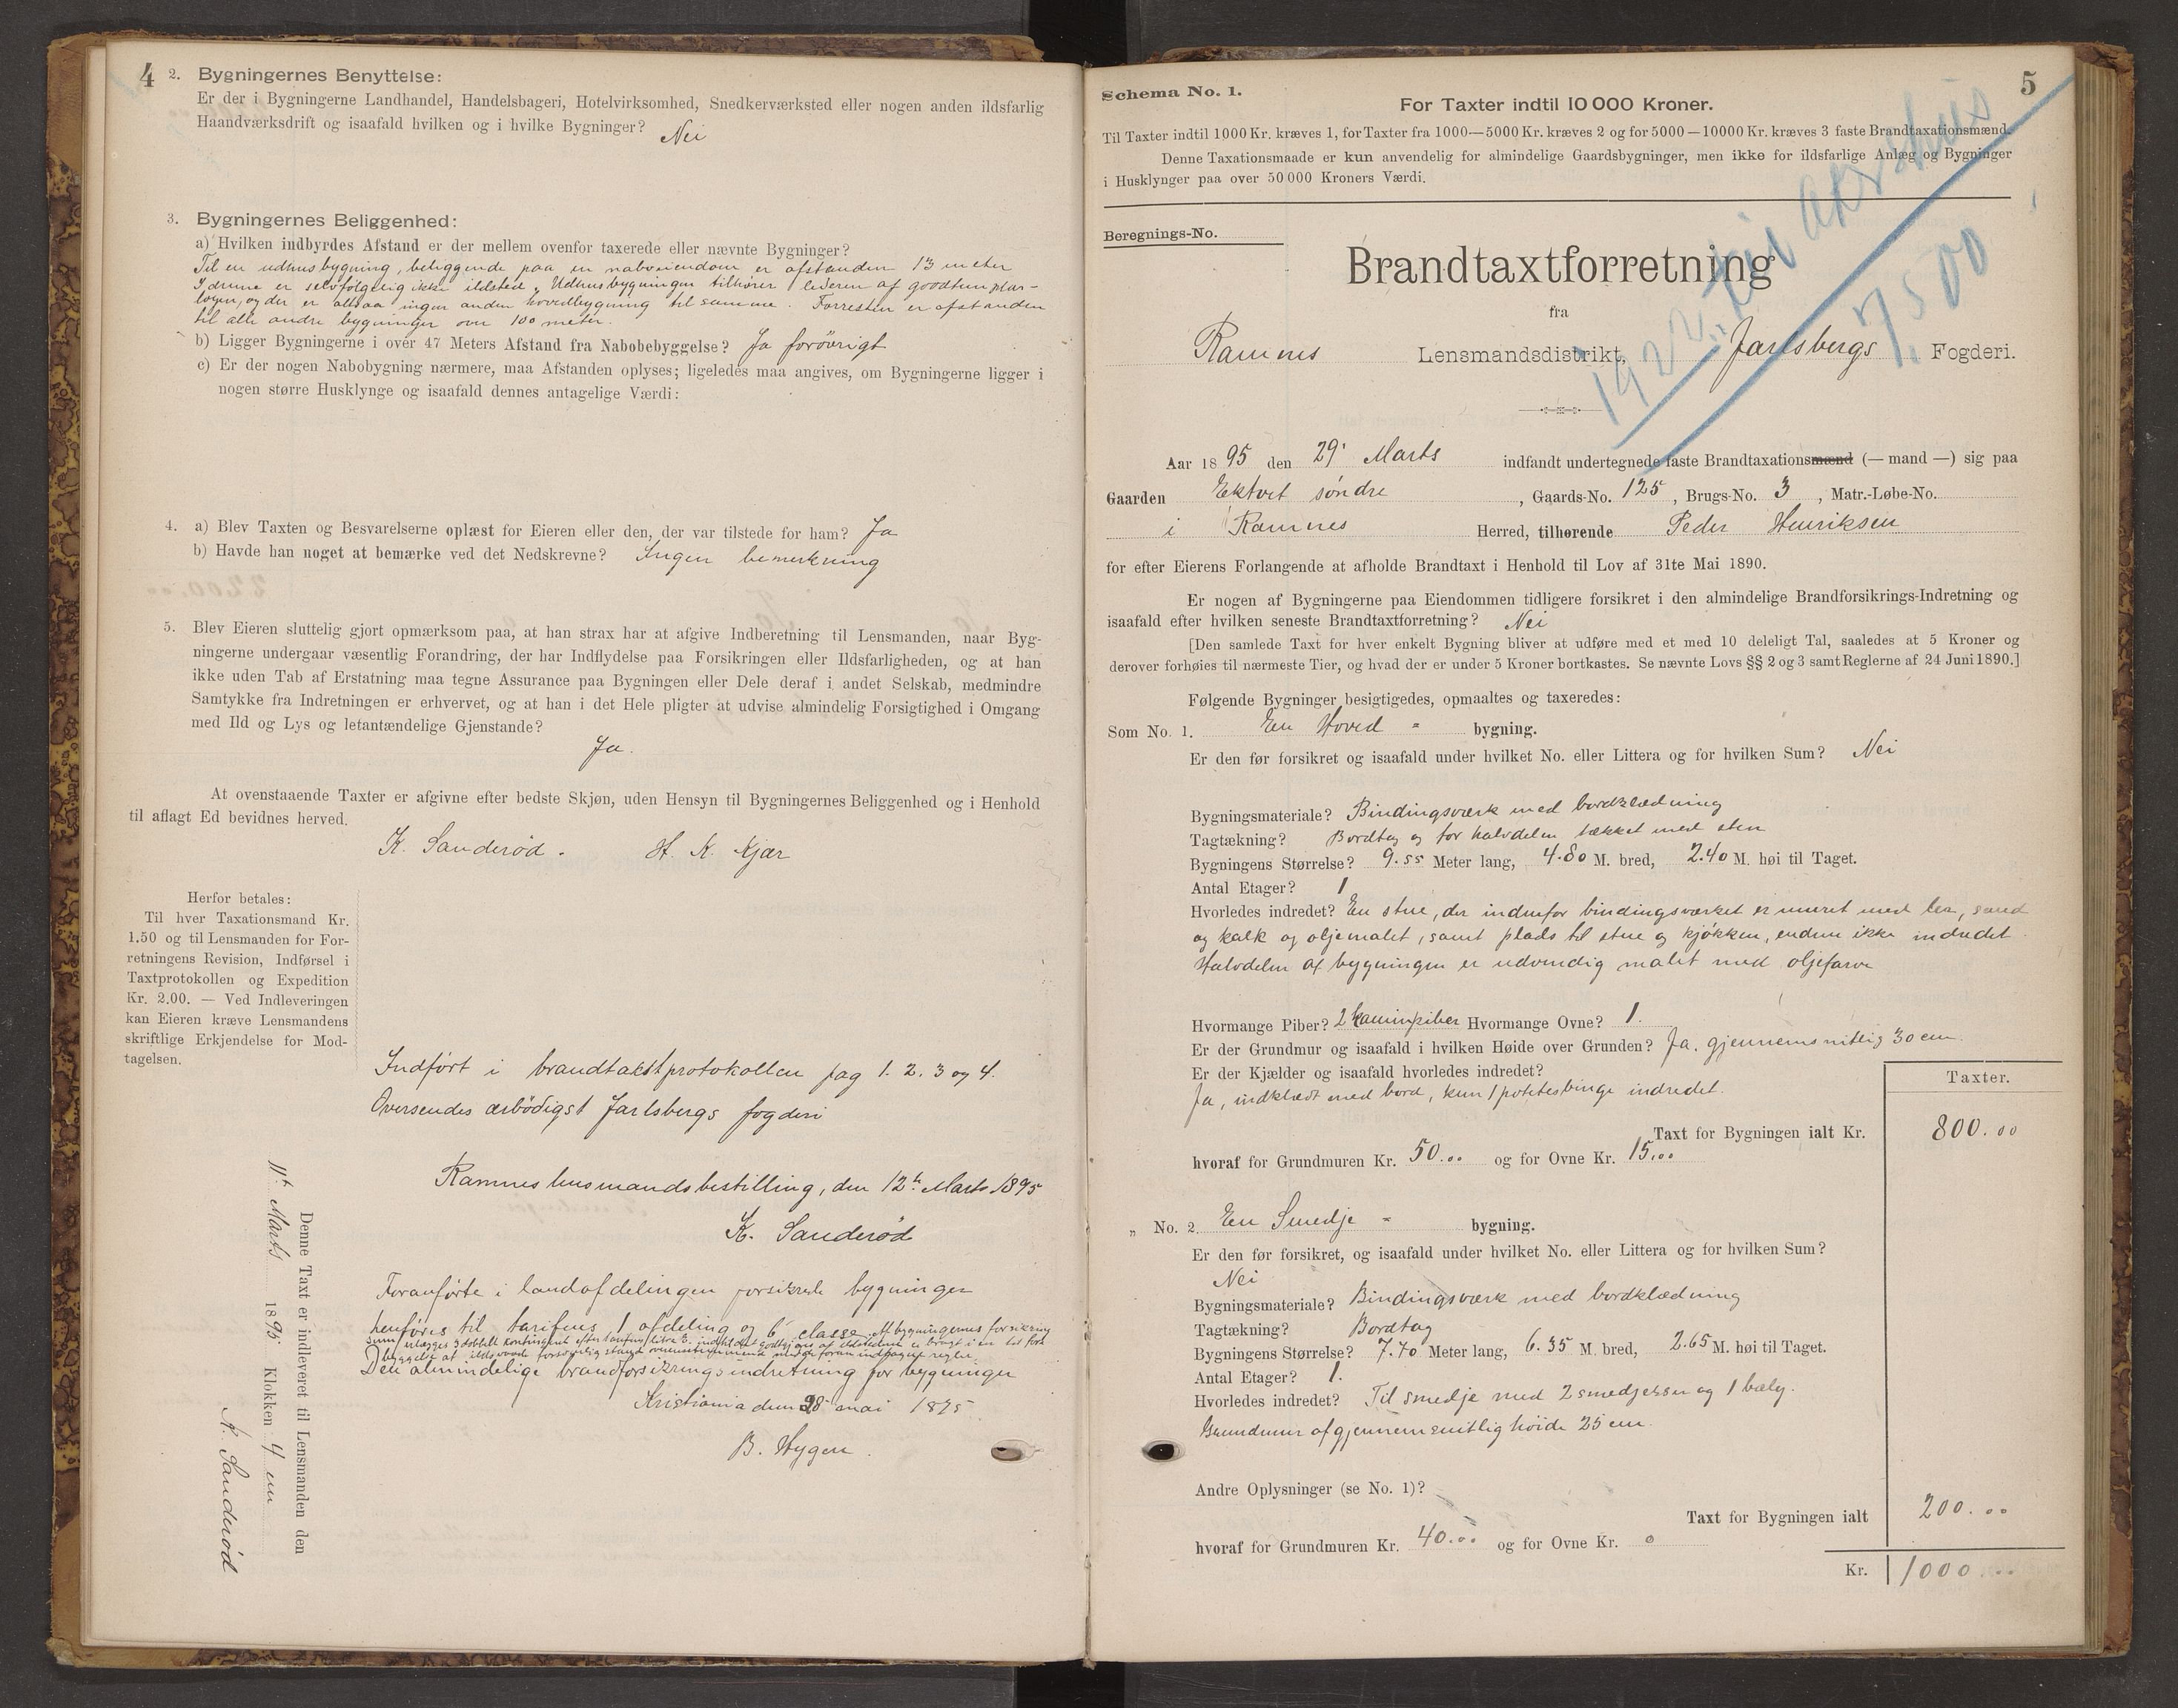 4
2. Bygningernes Benyttelse:
Er der i Bygningerne Landhandel, Handelsbageri, Hotelvirksomhed, Snedkerværksted eller nogen anden ildsfarlig
Haandværksdrift og isaafald hvilken og i hvilke Bygninger? Nei
3. Bygningernes Beliggenhed:
a) Hvilken indbyrdes Afstand er der mellem ovenfor taxerede eller nævnte Bygninger?
Til en udhusbygning, beliggende paa en naboeiendom er afstanden 13 meter
I denne er selvfølgelig ikke ildsted. Udhusbygningen tilhører lederen af goodtemplar-
logen, og der er altsaa ingen anden hovedbygning til samme. Forresten er afstanden
til alle andre bygninger over 100 meter.
b) Ligger Bygningerne i over 47 Meters Afstand fra Nabobebyggelse? Ja forøvrigt
c) Er der nogen Nabobygning nærmere, maa Afstanden oplyses; ligeledes maa angives, om Bygningerne ligger i
nogen større Husklynge og isaafald dennes antagelige Værdi:
4. a) Blev Taxten og Besvarelserne oplæst for Eieren eller den, der var tilstede for ham? Ja
b) Havde han noget at bemærke ved det Nedskrevne? Ingen bemerkning
5. Blev Eieren sluttelig gjort opmærksom paa, at han strax har at afgive Indberetning til Lensmanden, naar Byg-
ningerne undergaar væsentlig Forandring, der har Indflydelse paa Forsikringen eller Ildsfarligheden, og at han
ikke uden Tab af Erstatning maa tegne Assurance paa Bygningen eller Dele deraf i andet Selskab, medmindre
Samtykke fra Indretningen er erhvervet, og at han i det Hele pligter at udvise almindelig Forsigtighed i Omgang
med Ild og Lys og letantændelige Gjenstande?
Ja.
At ovenstaaende Taxter er afgivne efter bedste Skjøn, uden Hensyn til Bygningernes Beliggenhed og i Henhold
til aflagt Ed bevidnes herved.
K. Sanderød. H. K. Kjær
Herfor betales:
Til hver Taxationsmand Kr.
1.50 og til Lensmanden for For-
retningens Revision, Indførsel i
Taxtprotokollen og Expedition
Kr. 2.00. — Ved Indleveringen
kan Eieren kræve Lensmandens
skriftlige Erkjendelse for Mod-
tagelsen.
Indført i brandtakstprotokollen pag 1. 2. 3 og 4.
Oversendes ærbødigst Jarlsbergs fogderi
Ramnes lensmandsbestilling, den 12te Marts 1895
K. Sanderød
Denne Taxt er indleveret til Lensmanden den
11te Marts 1895 Klokken 4 em
K. Sanderød
Foranførte i landafdelingen forsikrede bygninger
henføres til tarifens 1 afdeling og 6 classe. Af bygningernes forsikring
Den almindelige brandforsikringsindretning for bygninger
Kristiania den 28 mai 1895
B. Hygen.
5
Schema No. 1.
For Taxter indtil 10 000 Kroner.
Til Taxter indtil 1000 Kr. kræves 1, for Taxter fra 1000—5000 Kr. kræves 2 og for 5000—10000 Kr. kræves 3 faste Brandtaxationsmænd.
Denne Taxationsmaade er kun anvendelig for almindelige Gaardsbygninger, men ikke for ildsfarlige Anlæg og Bygninger
i Husklynger paa over 50 000 Kroners Værdi.
1922. til akershus
7.500
Beregnings-No.
Brandtaxtforretning
fra
Ramnes Lensmandsdistrikt, Jarlsbergs Fogderi.
Aar 1895 den 29' Marts indfandt undertegnede faste Brandtaxationsmænd (— mand —) sig paa
Gaarden Ektvet søndre, Gaards-No. 125, Brugs-No. 3, Matr.-Løbe-No.
i Ramnes Herred, tilhørende Peder Henriksen
for efter Eierens Forlangende at afholde Brandtaxt i Henhold til Lov af 31te Mai 1890.
Er nogen af Bygningerne paa Eiendommen tidligere forsikret i den almindelige Brandforsikrings-Indretning og
isaafald efter hvilken seneste Brandtaxtforretning? Nei
[Den samlede Taxt for hver enkelt Bygning bliver at udføre med et med 10 deleligt Tal, saaledes at 5 Kroner og
derover forhøies til nærmeste Tier, og hvad der er under 5 Kroner bortkastes. Se nævnte Lovs §§ 2 og 3 samt Reglerne af 24 Juni 1890.]
Følgende Bygninger besigtigedes, opmaaltes og taxeredes:
Som No. 1. En Hoved = bygning.
Er den før forsikret og isaafald under hvilket No. eller Littera og for hvilken Sum? Nei
Bygningsmateriale? Bindingsværk med bordklædning
Tagtækning? Bordtag og for halvdelen tækket med sten
Bygningens Størrelse? 9.55 Meter lang, 4.80 M. bred, 2.40 M. høi til Taget.
Antal Etager? 1
Hvorledes indredet? En stue, der indenfor bindingsværket er muret med ler, sand
og kalk og oljemalet, samt plads til stue og kjøkken, endnu ikke indredet
Halvdelen af bygningen er udvendig malet med oljefarve
Hvormange Piber? 2 kaminpiber Hvormange Ovne? 1.
Er der Grundmur og isaafald i hvilken Høide over Grunden? Ja. gjennemsnitlig 30 cm.
Er der Kjælder og isaafald hvorledes indredet?
Ja, indklædt med bord, kun 1 potetesbinge indredet.
Taxter.
Taxt for Bygningen ialt Kr. 800.00
hvoraf for Grundmuren Kr. 50.00 og for Ovne Kr. 15.00
„ No. 2. En Smedje = bygning.
Er den før forsikret, og isaafald under hvilket No. eller Littera og for hvilken Sum?
Nei
Bygningsmateriale? Bindingsværk med bordklædning
Tagtækning? Bordtag
Bygningens Størrelse? 7.70 Meter lang, 6.35 M. bred, 2.65 M. høi til Taget.
Antal Etager? 1.
Hvorledes indredet? Til smedje med 2 smedjeesser og 1 bælg.
Grundmur af gjennemsnitlig høide 25 cm.
Andre Oplysninger (se No. 1)?
Taxt for Bygningen ialt 200.00
hvoraf for Grundmuren Kr. 40.00 og for Ovne Kr. 0
Kr. 1000...